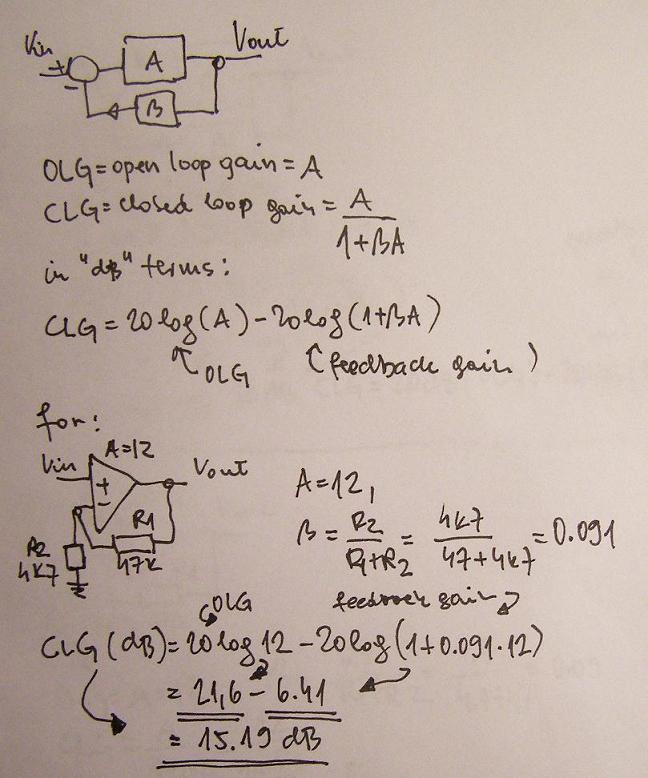 Vin
Vout
+
A
-
B
OLG=open loop gain = A
CLG=closed loop gain = A
1+βA
in "dB" terms:
CLG = 20log(A) - 20log(1+βA)
OLG
(feedback gain)
for:
A=12
Vin
Vout
+
-
R1
47k
R2
4k7
A=12,
β = R2 = 4k7 = 0.091
R1+R2 47+4k7
OLG
CLG (dB) = 20log12 - 20log(1+0.091·12)
= 21,6 - 6.41
= 15.19 dB